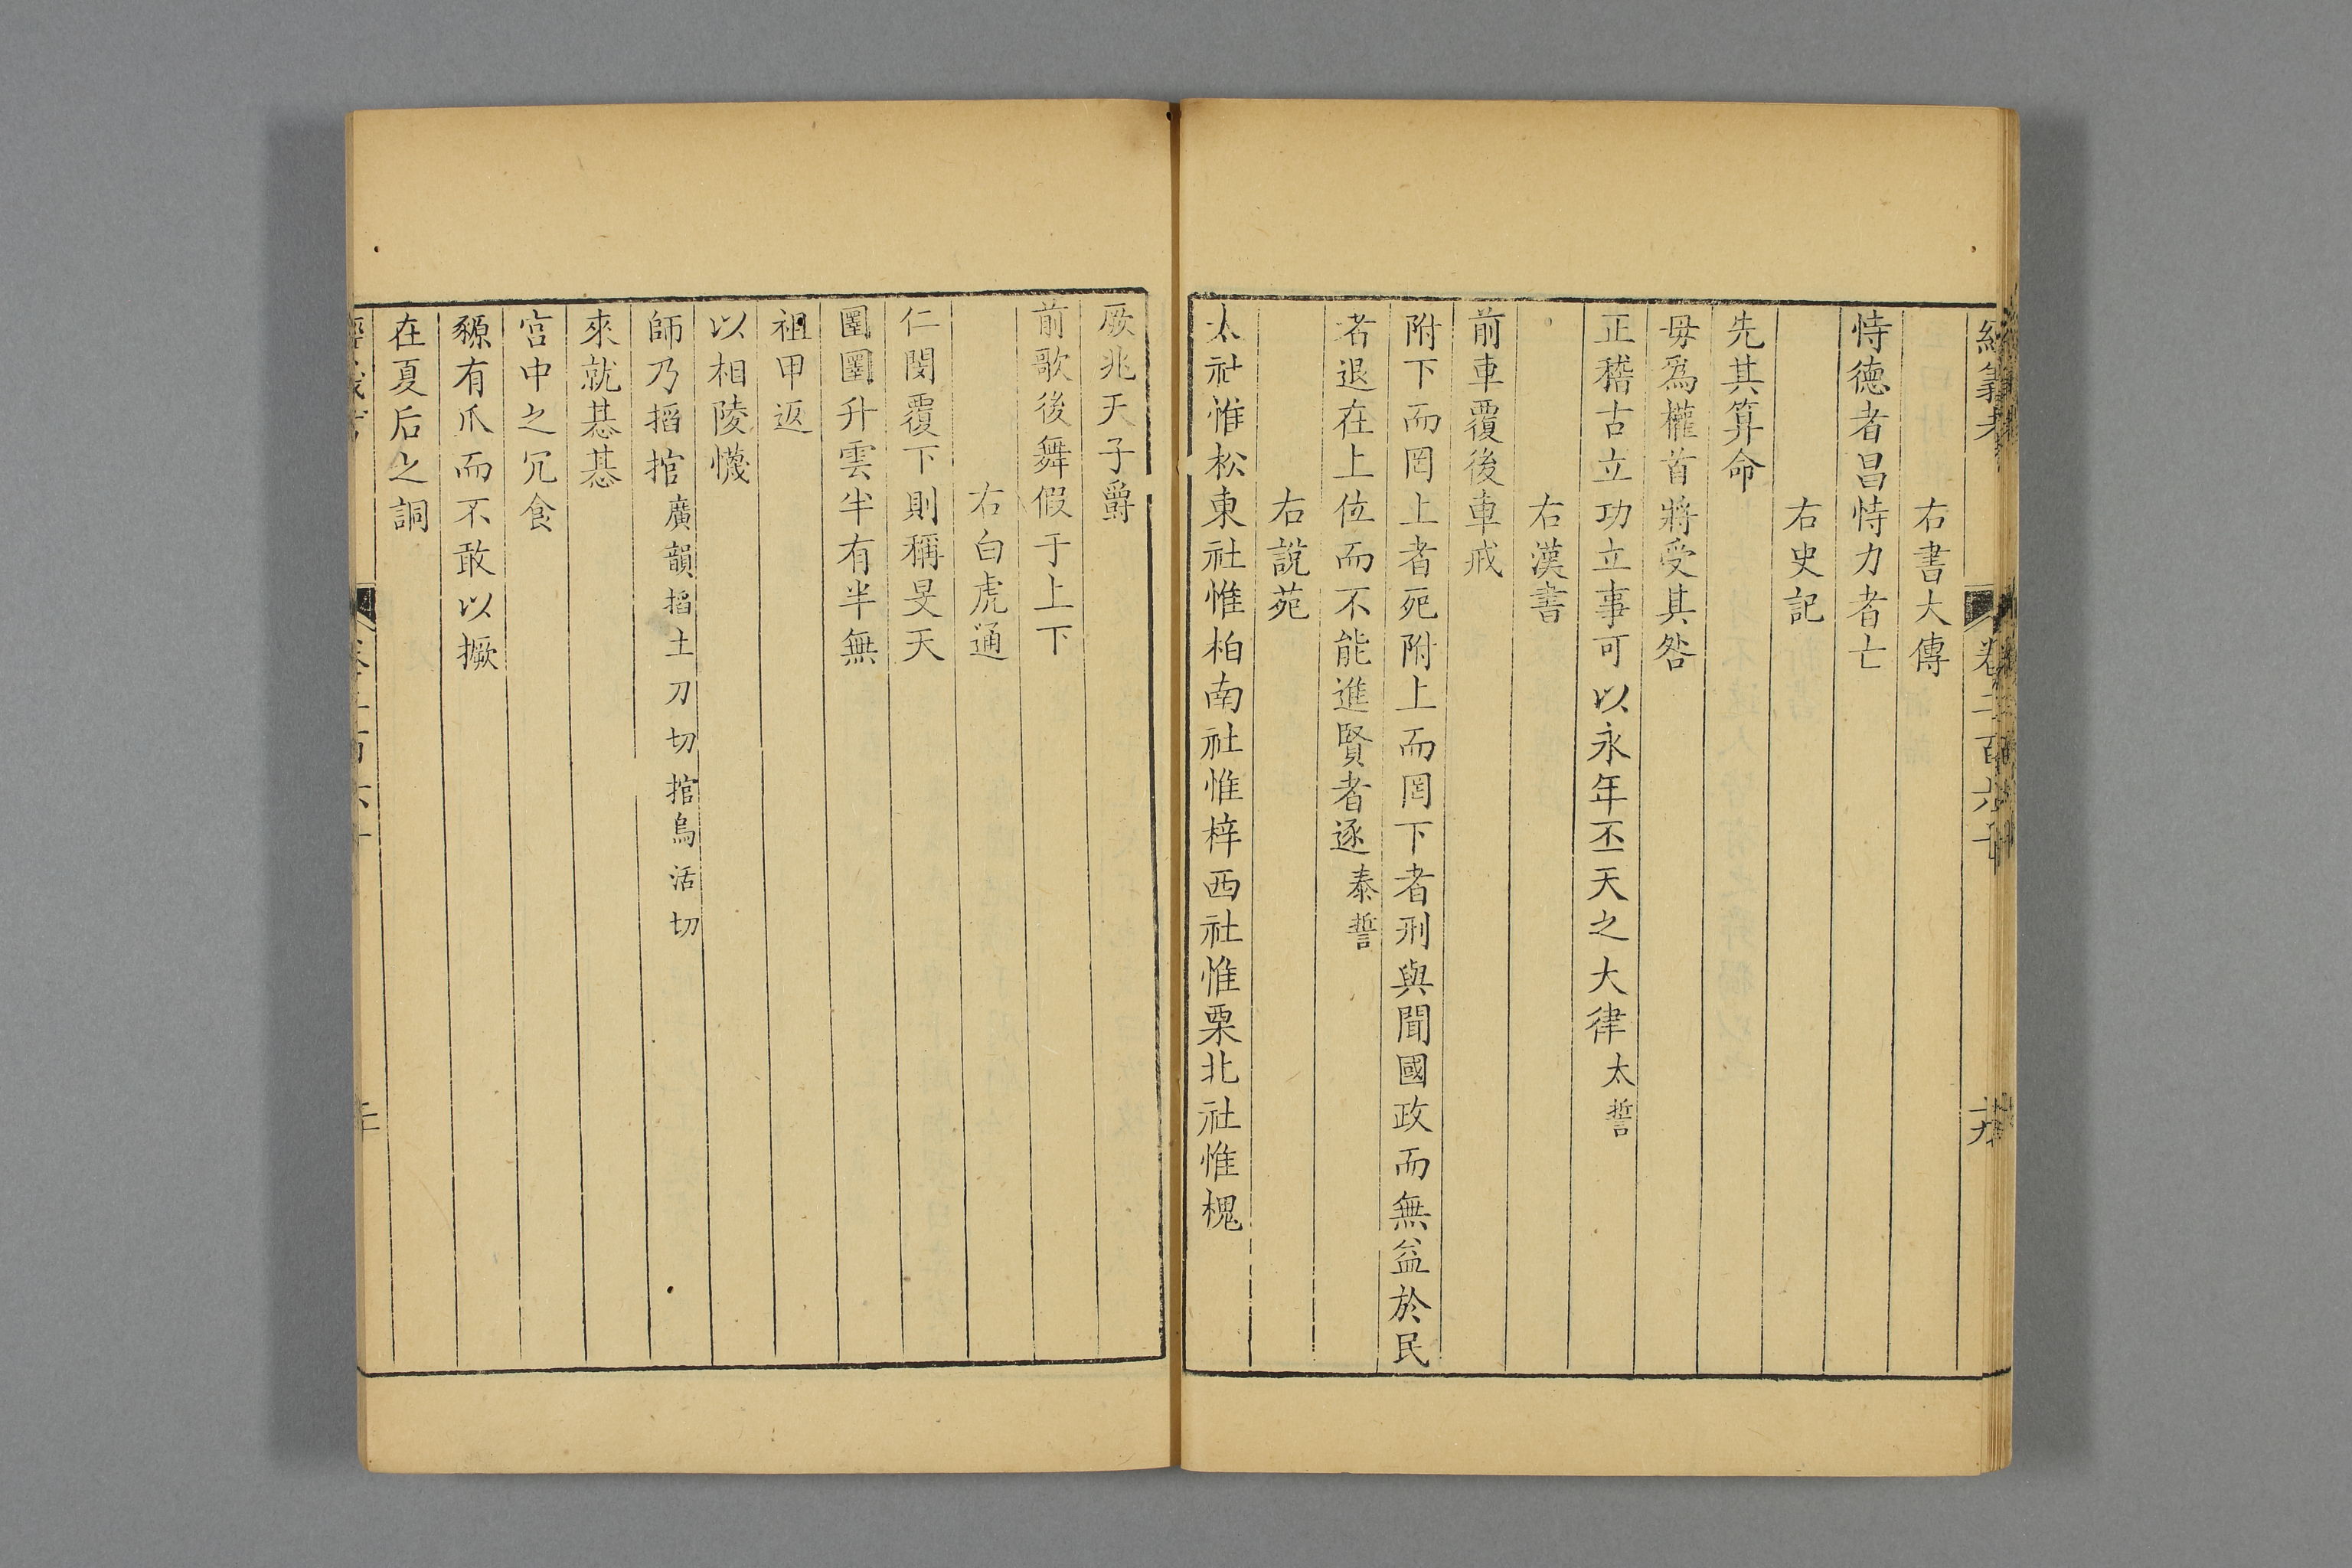 經義考 卷二百六十 十九
右書大傳
恃德者昌恃力者亡
右史記
先其算命
毋爲權首將受其咎
正稽古立功立事可以永年丕天之大律太誓
右漢書
前車覆後車戒
附下而罔上者死附上而罔下者刑與聞國政而無益於民
者退在上位而不能進賢者逐泰誓
右說苑
太社惟松東社惟柏南社惟梓西社惟栗北社惟槐
厥兆天子爵
前歌後舞假于上下
右白虎通
仁閔覆下則稱旻天
圛圛升雲半有半無
祖甲返
以相陵懱
師乃搯掐廣韻搯土刀切掐烏活切
來就惎惎
宮中之冗食
豲有爪而不敢以撅
在夏后之詷